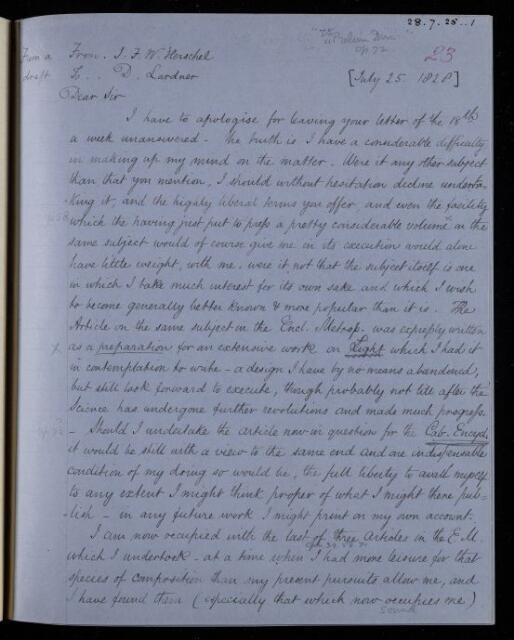 28.7.25..1
"Prelim Disc"
op. 72
23
From a draft
From. J. F. W. Herschel
To.. D. Lardner
[July 25. 1828]
Dear Sir
I have to apologise for leaving your letter of the 18th
a week unanswered. The truth is I have a considerable difficulty
in making up my mind on the matter. Were it any other subject
than that you mention, I should without hesitation decline underta-
king it, and the highly liberal terms you offer, and even the facility
which the having just put to press a pretty considerable volume on the
same subject would of course give me in its execution would alone
have little weight, with me, were it not that the subject itself is one
in which I take much interest for its own sake and which I wish
to become generally better known & more popular than it is. The
Article on the same subject in the Encl. Metrop. was expressly written
x as a preparation for an extensive work on Light which I had it
in contemplation to write - a design I have by no means abandoned,
but still look forward to execute, though probably not till after the
Science has undergone further revolutions and made much progress.
- Should I undertake the article now in question for the Cab. Encyd,
it would be still with a view to the same end and an indispensable
condition of my doing so would be, the full liberty to avail myself
to any extent I might think proper of what I might there pub-
-lish - in any future work I might print on my own account.
I am now occupied with the last of three Articles in the E. M.
which I undertook - at a time when I had more leisure for that
species of composition than my present pursuits allow me, and
I have found them (especially that which now occupies me)
Sound